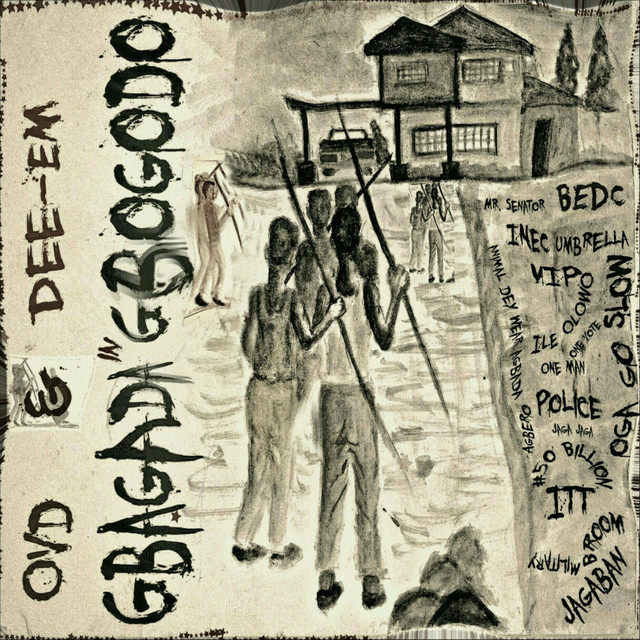 OVD & DEE-EM
GBAGADA IN GBOGODO
MR. SENATOR BEDC
INEC UMBRELLA
VIPO
ANIMAL DEY WEAR AGBERO
ILE OLOWO
ONE MAN ONE VOTE
POLICE
JAGA JAGA
#50 BILLION
ITT
MILITARY
BROOM
JAGABAN
OGA GO SLOW